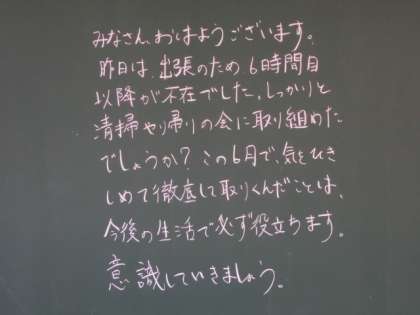 みなさん、おはようございます。
昨日は、出張のため、6時間目
以降が不在でした。しっかりと
清掃やり帰りの会に取り組めた
でしょうか？この6月で、気をひき
しめて徹底して取りくんだことは、
今後の生活で必ず役立ちます。
意識していきましょう。